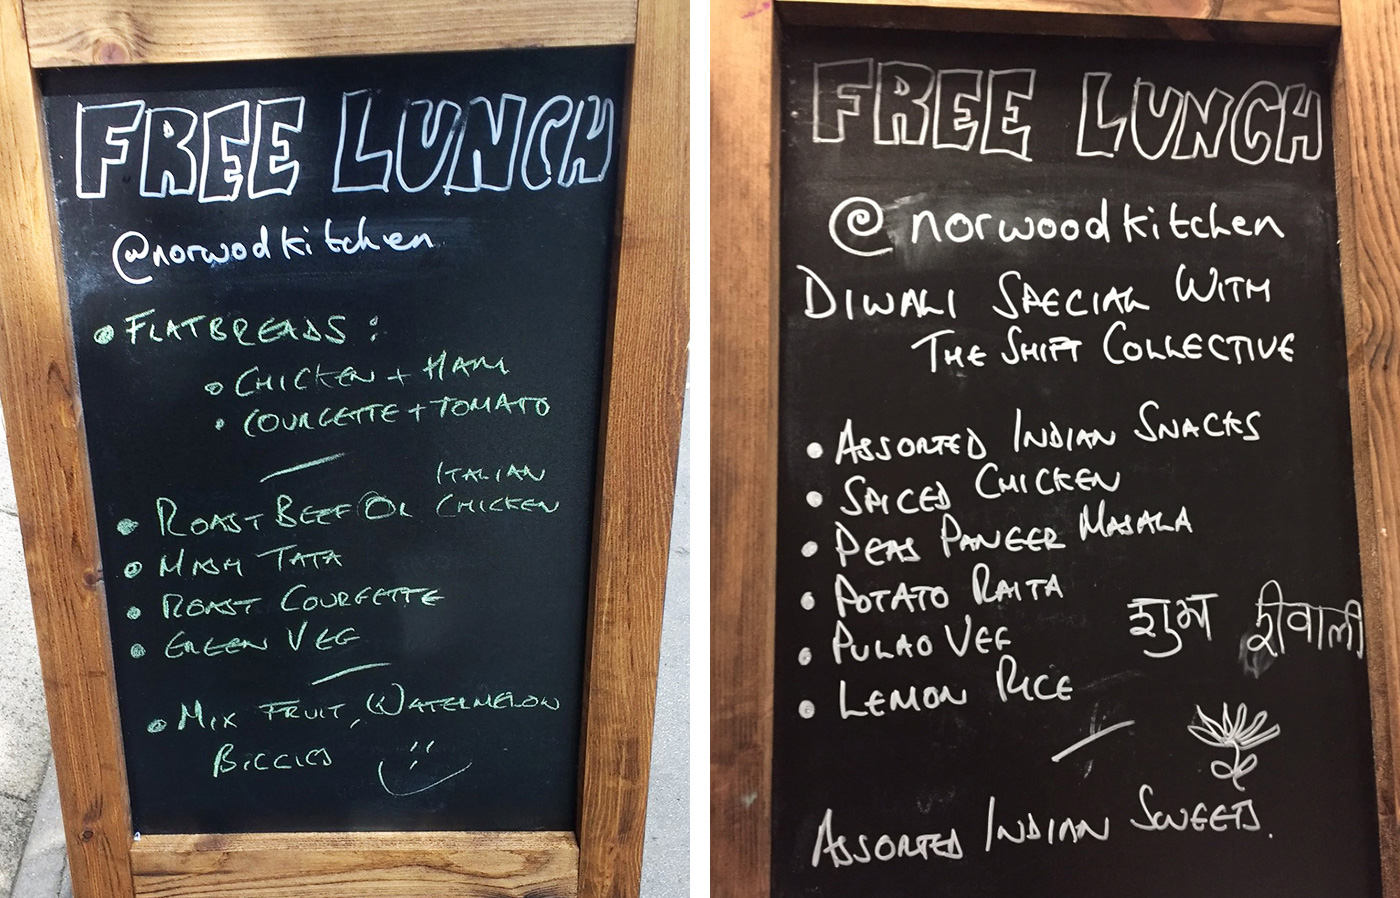 FREE LUNCH
@norwoodkitchen
• FLATBREADS:
• CHICKEN + HAM
• COURGETTE + TOMATO
• ROAST BEEF OR ITALIAN CHICKEN
• MASH TATA
• ROAST COURGETTE
• GREEN VEG
• MIX FRUIT, WATERMELON
BICCIES
FREE LUNCH
@norwoodkitchen
DIWALI SPECIAL WITH
THE SHIFT COLLECTIVE
• ASSORTED INDIAN SNACKS
• SPICED CHICKEN
• PEAS PANEER MASALA
• POTATO RAITA
• PULAO VEG
• LEMON RICE
शुभ दीवाली
ASSORTED INDIAN SWEETS.